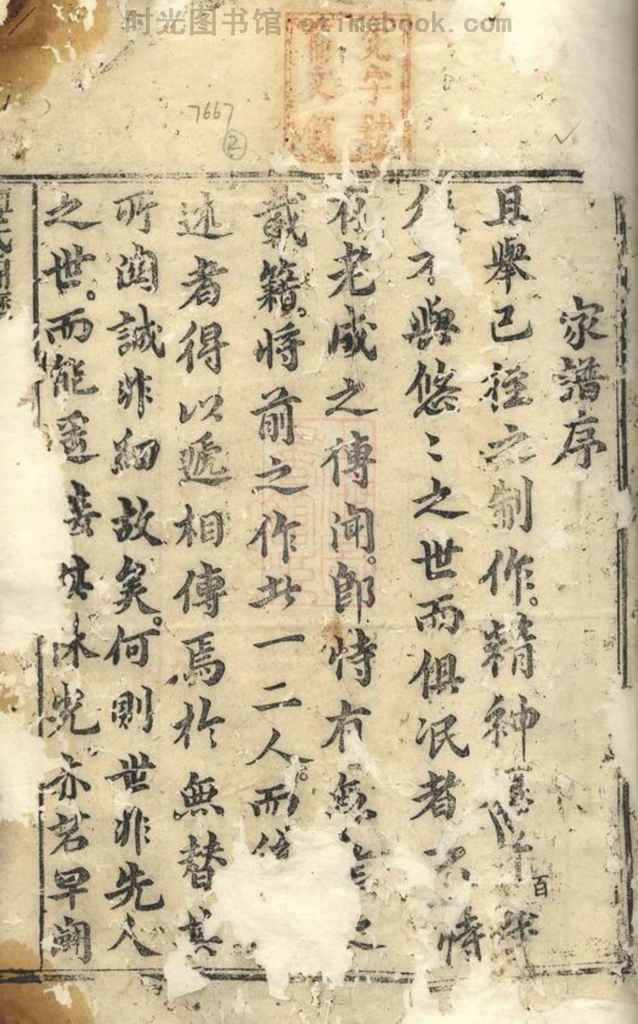 时光图书馆 otimebook.com
7667
②
家譜序
且舉已徃之制作。精神
百
不與悠〻之世而俱泯者。恃
老成之傳闻。即恃有無之
載籍。將前之作此一二人。而
述者得以遞相傳焉於無替其
所関誠非細故矣。何則世非先人
之世。而能其休光亦若早